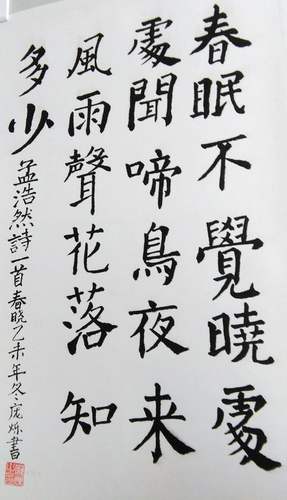 春眠不覺曉處
處聞啼鳥夜来
風雨聲花落知
多少 孟浩然詩一首春晓乙未年冬庞烁書